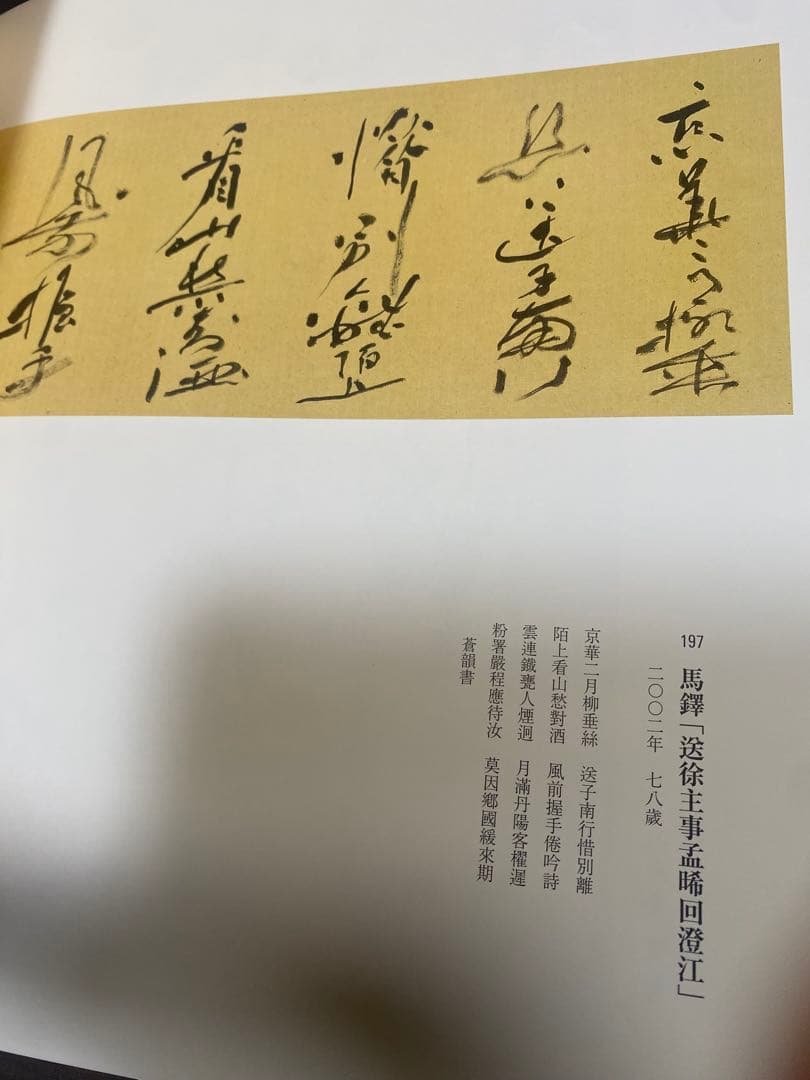 京華二月柳垂
絲送子南行
惜別離陌上
看山愁對酒
風前握手
197 馬鐸「送徐主事孟晞回澄江」
二〇〇二年 七八歳
京華二月柳垂絲 送子南行惜別離
陌上看山愁對酒 風前握手倦吟詩
雲連鐵甕人煙迥 月滿丹陽客櫂遲
粉署嚴程應待汝 莫因鄕國緩來期
蒼韻書